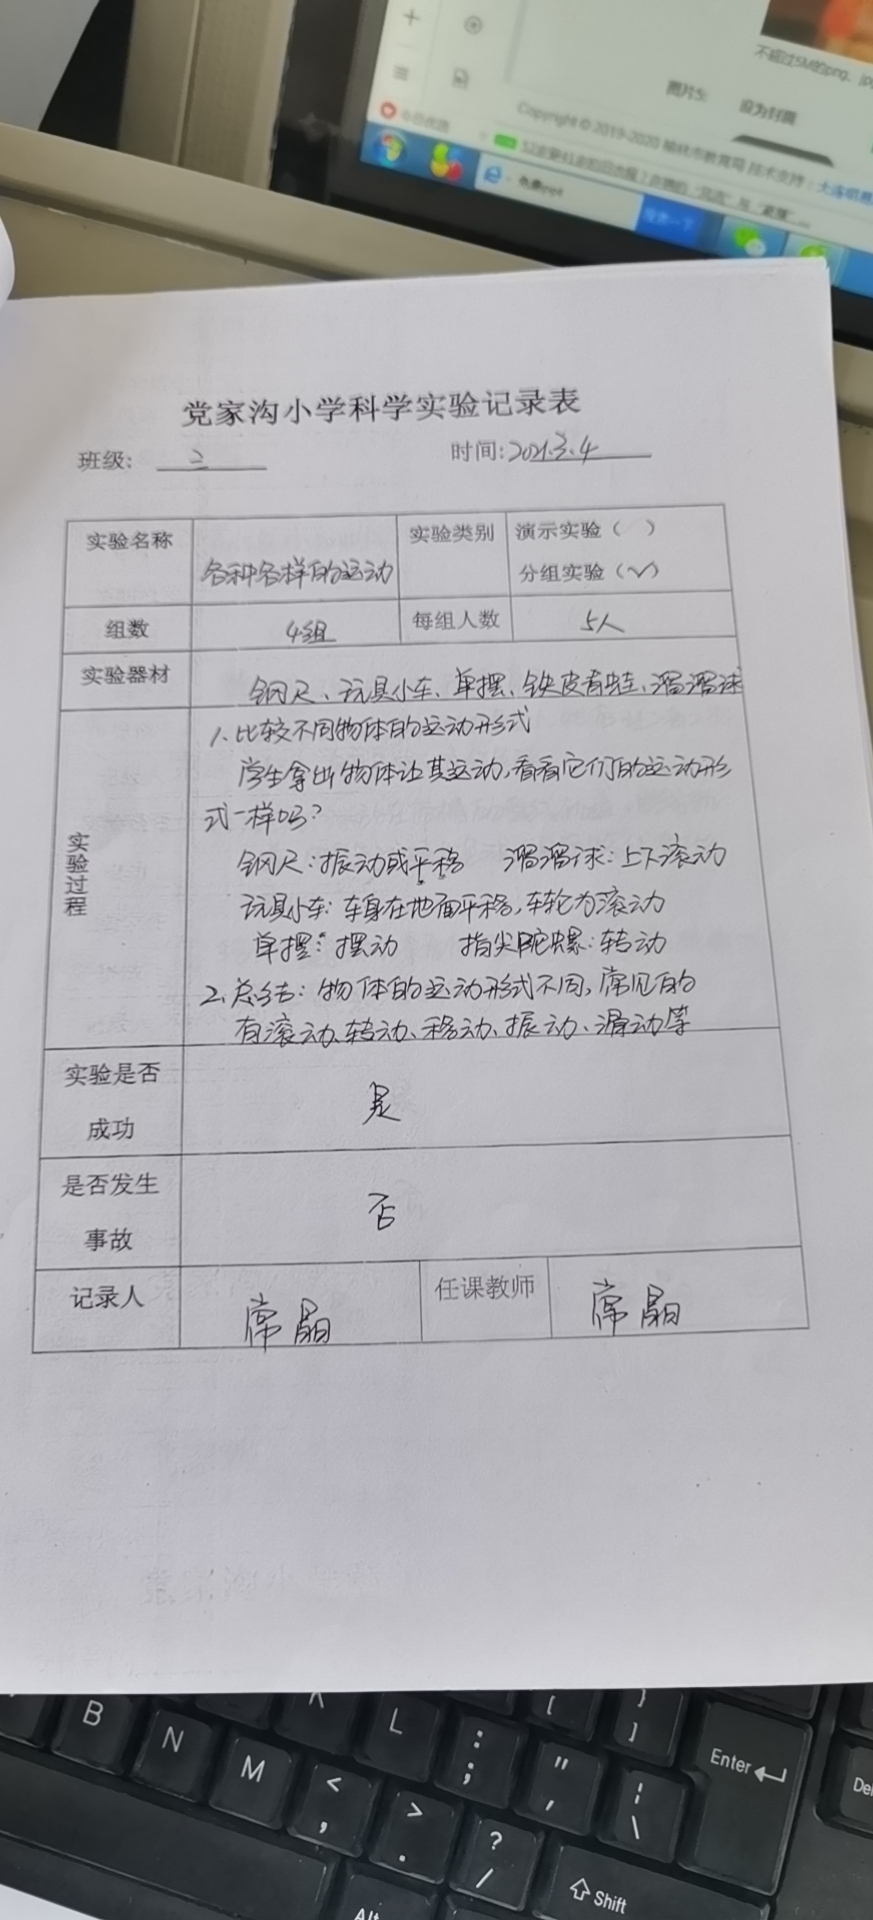 不超过5M的png、jp
图片5: 设为封面
Copyright © 2019-2020 榆林市教育局 技术支持：大连明
今日优选
免费ppt
搜索一下
党家沟小学科学实验记录表
班级: 三 时间: 2021.3.4
实验名称 各种各样的运动 实验类别 演示实验（ ）
分组实验（√）
组数 4组 每组人数 5人
实验器材 钢尺、玩具小车、单摆、铁皮青蛙、溜溜球
实验过程
1、比较不同物体的运动形式
学生拿出物体让其运动，看看它们的运动形
式一样吗？
钢尺：振动或平移 溜溜球：上下滚动
玩具小车：车身在地面平移，车轮为滚动
单摆：摆动 指尖陀螺：转动
2、总结：物体的运动形式不同，常见的
有滚动、转动、移动、振动、滑动等
实验是否
成功 是
是否发生
事故 否
记录人 常晶 任课教师 常晶
B N M L
< ,
> .
: ;
" '
? /
[ } ]
¦ \
Enter
Shift
Alt
De